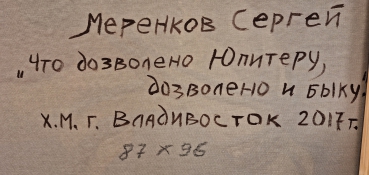 Меренков Сергей
„Что дозволено Юпитеру,
дозволено и быку".
Х.М. г. Владивосток 2017 г.
87 × 96